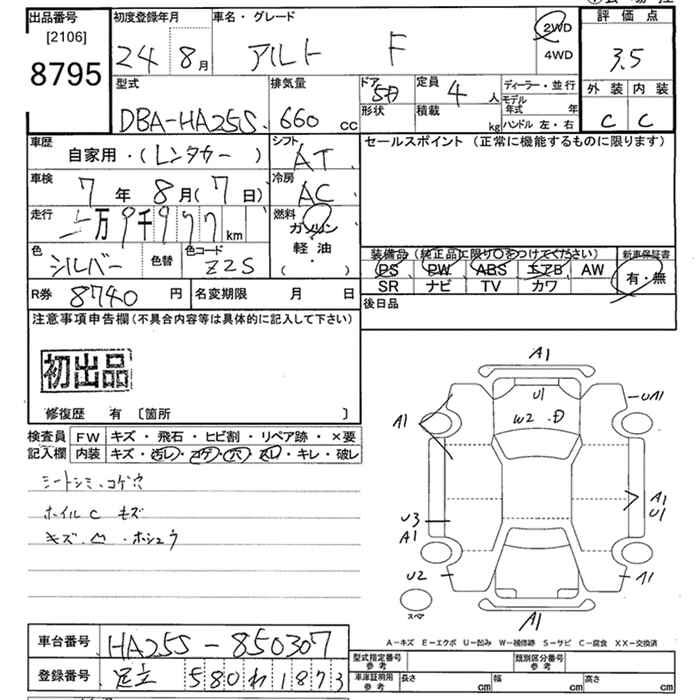 出品番号 初度登録年月 車名・グレード 評価点
[2106]
8795
24 8月 アルト F 2WD 4WD 3.5
外装 内装
C C
型式 排気量 ドア 定員 ディーラー・並行
DBA-HA25S 660 cc 5D 4 人
形状 積載 kg モデル年式 年
ハンドル 左・右
車歴 シフト セールスポイント (正常に機能するものに限ります)
自家用・(レンタカー) AT
車検 冷房
7年 8月(7日) AC
走行 燃料
万9千977km ガソリン
軽・油
( )
色 色替 色コード
シルバー Z2S
装備品 (純正品に限り○をつけてください) 新車保証書
PS PW ABS エアB AW 有・無
SR ナビ TV カワ
R券 8740円 名変期限 月 日
後日品
注意事項申告欄(不具合内容等は具体的に記入して下さい)
初出品
修復歴 有 〔箇所 〕
検査員 FW キズ・飛石・ヒビ割・リペア跡・×要
記入欄 内装 キズ・汚レ・コゲ・穴・スレ・キレ・破レ
シートシミ・コゲ穴
ホイルC キズ
キズ・凹・ホシュウ
A1
U1
W2
A1
UA1
U3
A1
A1
U1
U2
A1
スペア
A1
A-キズ E-エクボ U-凹み W-補修跡 S-サビ C-腐食 XX-交換済
車台番号 HA25S-850307
登録番号 足立 580 わ 1873
型式指定番号 参考 類別区分番号 参考
車庫証明用 参考 長さ cm 幅 cm 高さ cm